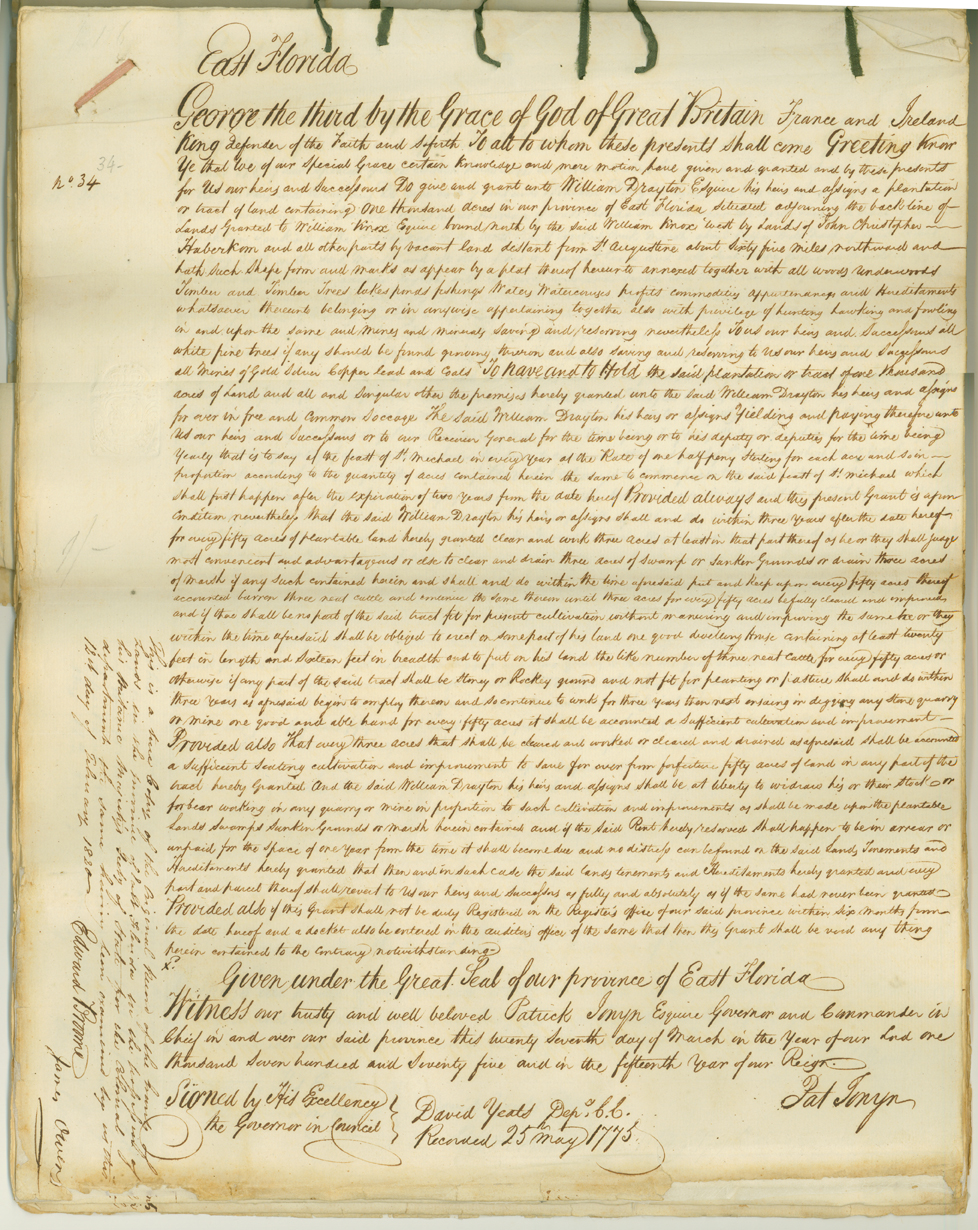 East Florida
George the third by the Grace of God of Great Britain France and Ireland
King Defender of the Faith and soforth To all to whom these presents shall come Greeting Know
Ye that We of our Special Grace certain Knowledge and mere motion have given and granted and by these presents
34-
no 34
for Us our heirs and Successours Do give and grant unto William Drayton Esquire his heirs and assigns a plantation
or tract of land containing One thousand acres in our province of East Florida situated adjoining the back line of
Lands granted to William Knox Esquire bound north by the said William Knox West by Lands of John Christopher
Haberkorn and all other parts by vacant land distant from St Augustine about Sixty five miles northward and
hath such Shape form and marks as appear by a plat thereof hereunto annexed together with all woods Underwoods
Timber and Timber Trees lakes ponds fishings Waters Watercourses profits commodities appurtenances and Hereditaments
whatsoever thereunto belonging or in anywise appertaining together also with privilege of hunting hawking and fowling
in and upon the same and mines and minerals Saving and reserving nevertheless To us our heirs and Successours all
white pine trees if any should be found growing thereon and also saving and reserving to Us our heirs and Successours
all Mines of Gold Silver Copper Lead and Coals To have and to Hold the said plantation or tract of one thousand
acres of Land and all and Singular other the premises hereby granted unto the said William Drayton his heirs and assigns
for ever in free and Common Soccage The Said William Drayton his heirs or assigns Yielding and paying therefore unto
Us our heirs and Successours or to our Receiver General for the time being or to his deputy or deputies for the time being
Yearly that is to say at the feast of St. Michael in every Year at the Rate of one half peny Sterling for each acre and so in
proportion according to the quantity of acres contained herein the same to commence on the said feast of St. Michael which
shall first happen after the expiration of two Years from the date hereof Provided always and this present Grant is upon
Condition nevertheless that the said William Drayton his heirs or assigns shall and do within three Years after the date hereof
for every fifty acres of plantable land hereby granted clear and work three acres at least in that part thereof as he or they shall judge
most convenient and advantageous or else to clear and drain three acres of Swamp or Sunken Grounds or drain three acres
of Marsh if any such contained herein and shall and do within the time aforesaid put and keep upon every fifty acres thereof
accounted barren three neat cattle and continue the same thereon until three acres for every fifty acres be fully cleared and improved
and if there shall be no part of the said tract fit for present cultivation without manuring and improving the same he or they
within the time aforesaid shall be obliged to erect on some part of his land one good dwelling House containing at least twenty
feet in length and Sixteen feet in breadth and to put on his land the like number of three neat Cattle for every fifty acres or
otherwise if any part of the said tract shall be Stoney or Rockey ground and not fit for planting or pasture shall and do within
three Years as aforesaid begin to employ thereon and so continue to work for three Years then next ensuing in digging any stone quarry
or mine one good and able hand for every fifty acres it shall be accounted a Sufficient cultivation and improvement
Provided also That every three acres that shall be cleared and worked or cleared and drained as aforesaid shall be accounted
a sufficient seating cultivation and improvement to save for ever from forfeiture fifty acres of land in any part of the
tract hereby Granted And the said William Drayton his heirs and assigns shall be at liberty to widraw his or their Stock or
forbear working in any quarry or mine in proportion to such cultivation and improvements as shall be made upon the plantable
Lands Swamps Sunken Grounds or Marsh herein contained and if the Said Rent hereby reserved shall happen to be in arrear or
unpaid for the space of one Year from the time it shall become due and no distress can be found on the said Lands Tenements and
Hereditaments hereby granted that then and in such case the said Lands tenements and Hereditaments hereby granted and every
part and parcel thereof shall revert to Us our heirs and Successors as fully and absolutely as if the same had never been granted
Provided also if this Grant shall not be duly Registered in the Register's office of our said province within Six Months from
the date hereof and a docket also be entered in the auditors office of the same that then this Grant shall be void any thing
herein contained to the Contrary notwithstanding
Given under the Great Seal of our province of East Florida
Witness our trusty and well beloved Patrick Tonyn Esquire Governor and Commander in
Chief in and over our said province this twenty Seventh day of March in the Year of our Lord one
thousand Seven hundred and Seventy five and in the fifteenth Year of our Reign.
Pat Tonyn
Signed by His Excellency
the Governor in Council
David Yeats Depy C.C.
Recorded 25 May 1775
This is a true Copy of the Original Record of the Grants of
Lands in the province of East Florida in the possession of
his Britannic Majestys Secy of State for the Colonial
department the same having been examined by us this
12th day of February 18
Edward Brome
James Owens